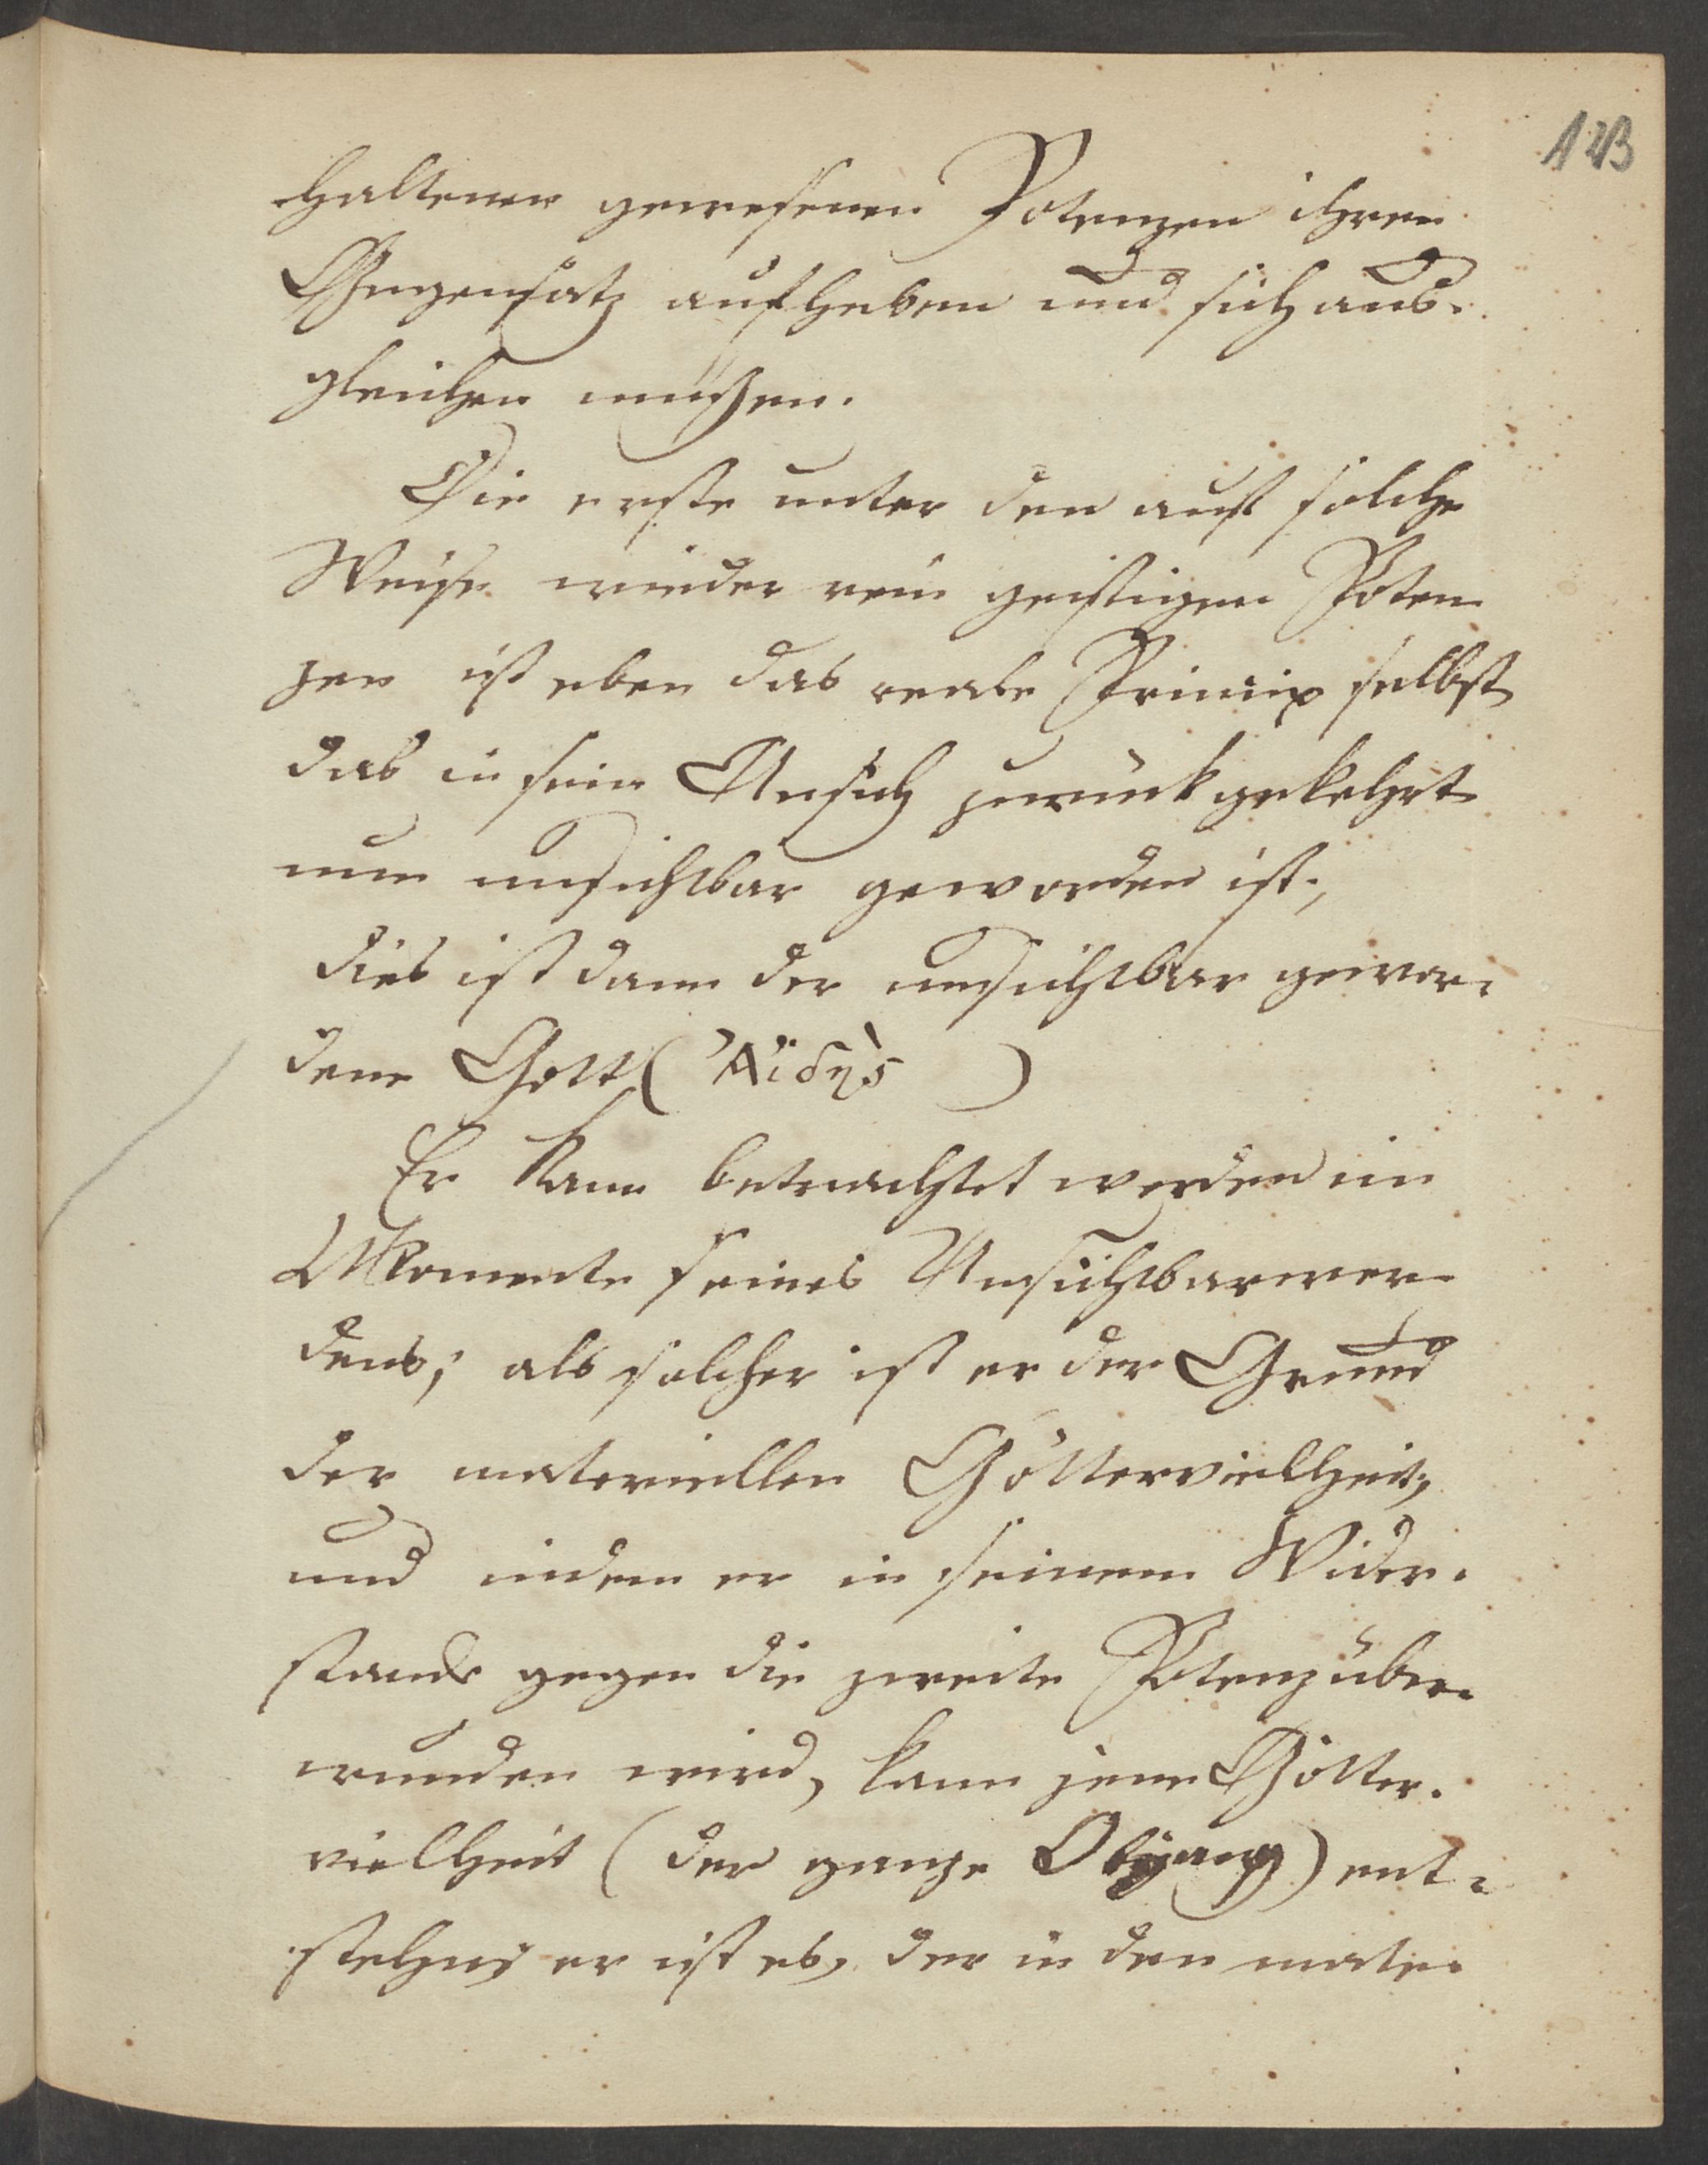 123
haltenen gewesenen Potenzen ihren
Gegensatz aufheben und sich aus-
gleichen müßen.
Die erste unter den auf solche
Weise wieder rein geistigen Poten-
zen ist eben das reale Princip selbst
das in sein Ansich zurückgekehrt
nun unsichtbar geworden ist;
dies ist dann der unsichtbar gewor-
dene Gott (Ἀϊδης)
Er kann betrachtet werden im
Momente seines Unsichtbarwer-
dens; als solcher ist er der Grund
der materiellen Göttervielheit,
und indem er in seinem Wider-
stande gegen die zweite Potenz über-
wunden wird, kann jene Götter-
vielheit (der ganze Olymp) ent-
stehen; er ist es, der in den mate-